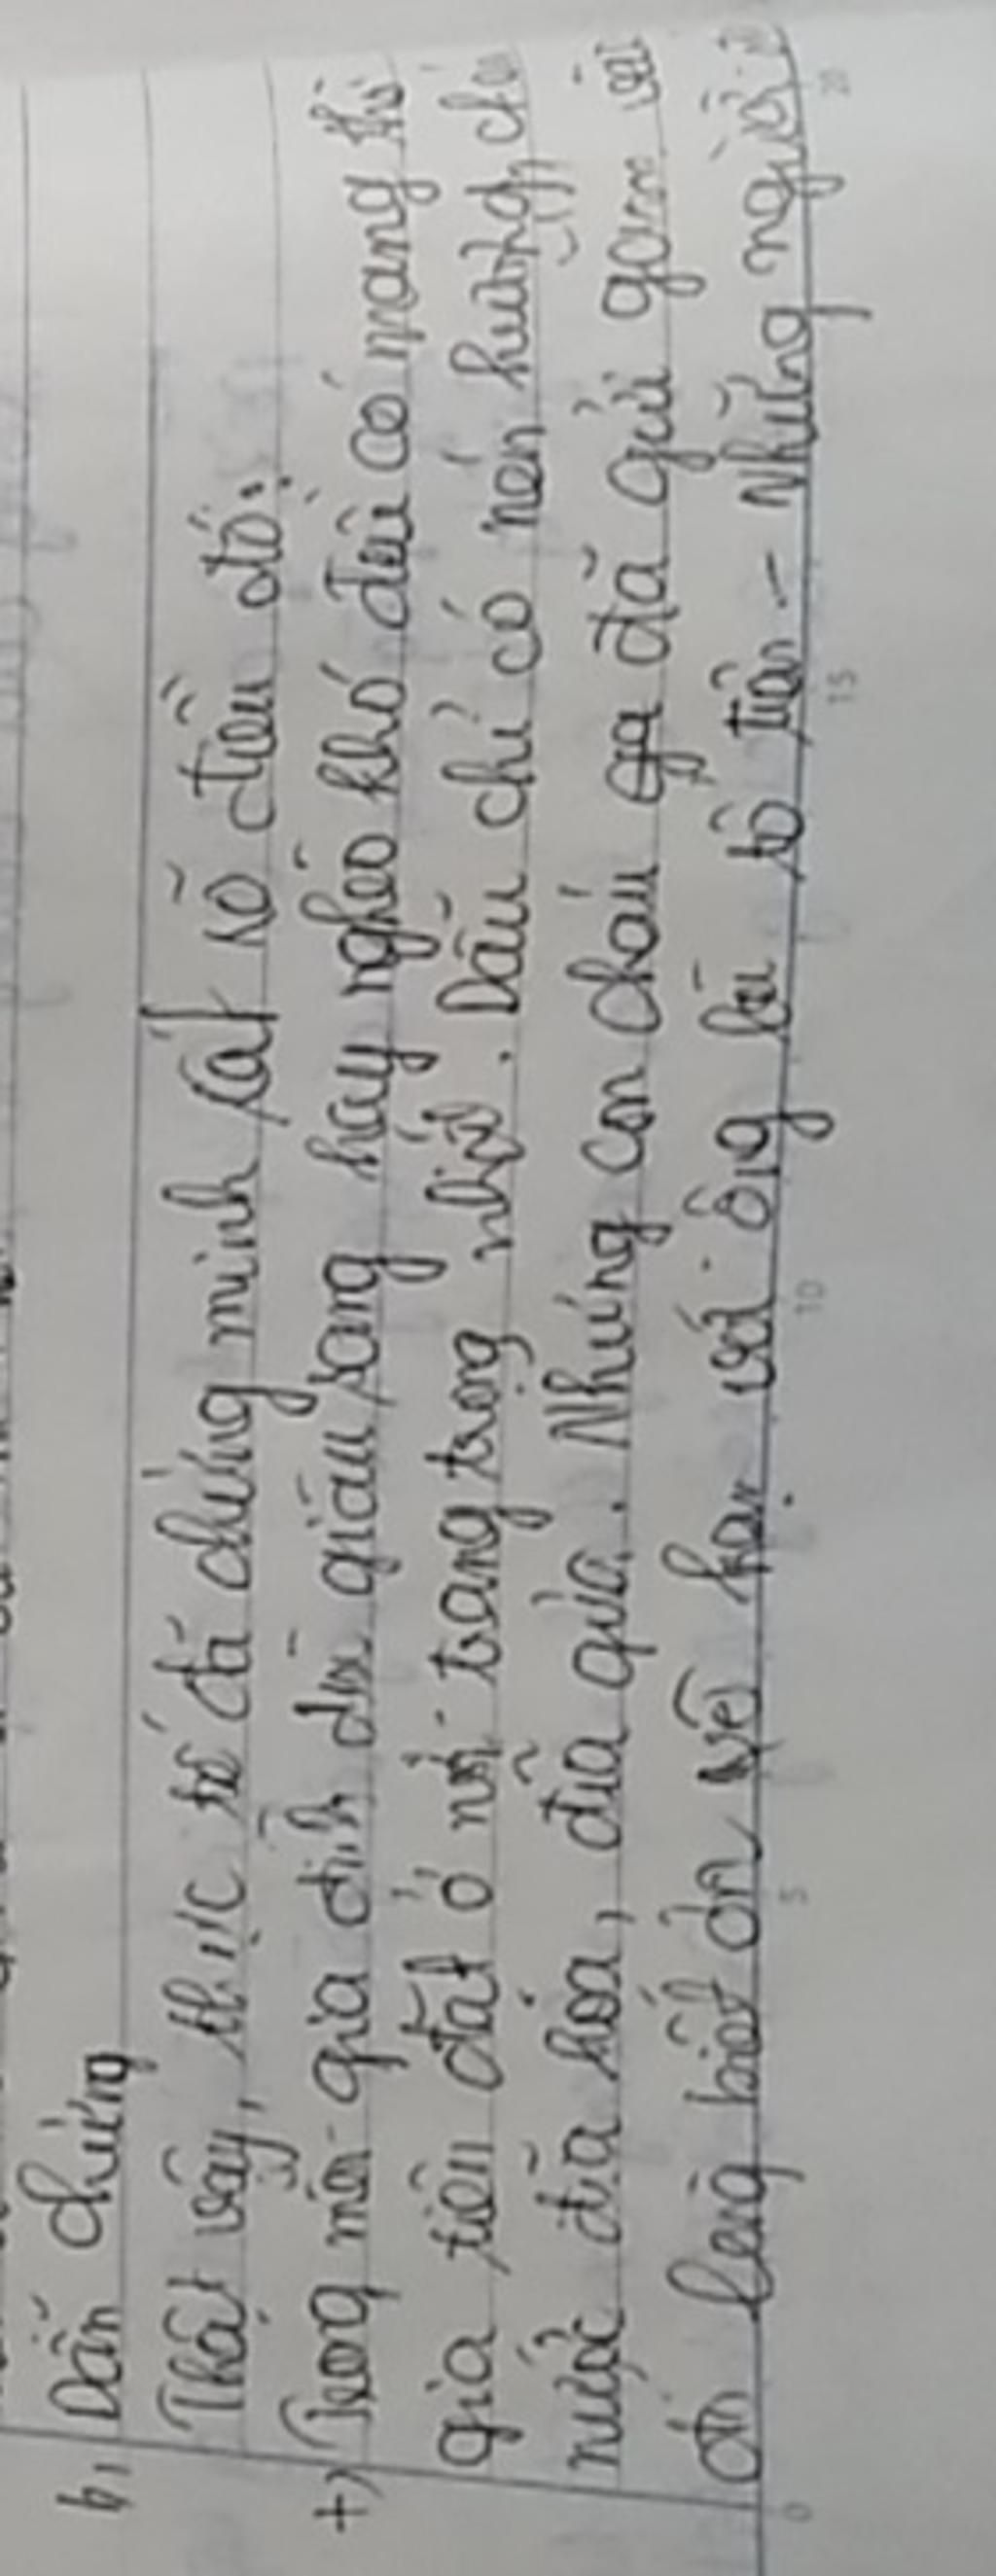 b, Dẫn chứng
Thật vậy, thực tế đã chứng minh rất rõ điều đó:
+) Trong mỗi gia đình dù giàu sang hay nghèo khó đều có mang thờ
gia tiên đặt ở nơi trang trọng nhất. Dẫu chỉ có nén hương, chén
nước đĩa hoa, đĩa quả. Nhưng con cháu đã gửi gam với
ơn lòng biết ơn về họ và ông bà tổ tiên - Những người